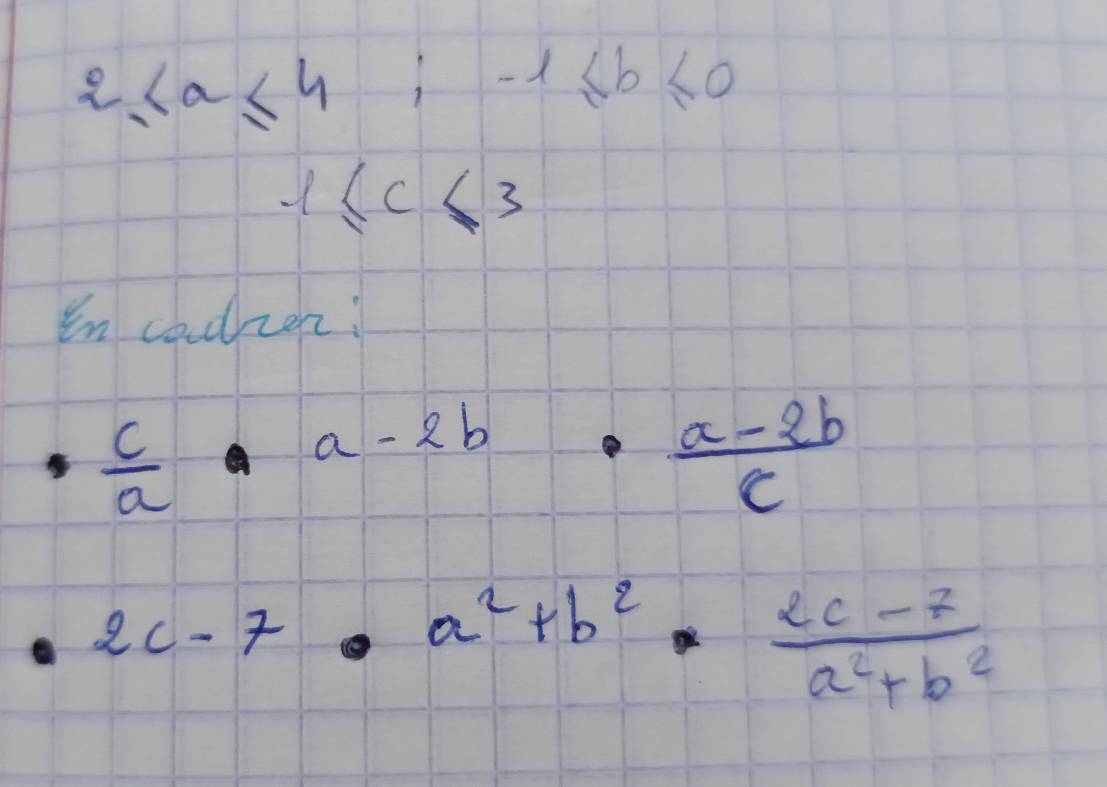 2 ⩽ a ⩽ 4 ; -1 ⩽ b ⩽ 0
1 ⩽ c ⩽ 3
En cadrer :
• c/a • a - 2b • (a - 2b)/c
• 2c - 7 • a² + b² • (2c - 7)/(a² + b²)